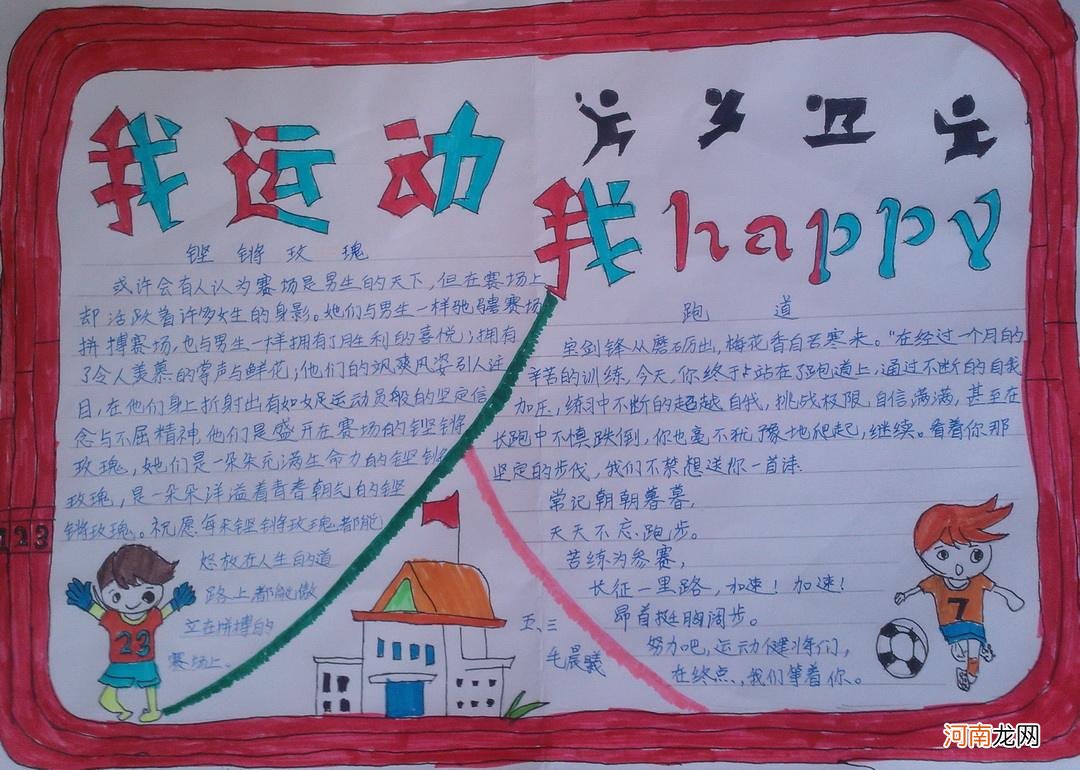 我运动
我happy
铿锵玫瑰
或许会有人认为赛场是男生的天下，但在赛场上
却活跃着许多女生的身影。她们与男生一样驰骋赛场
拼搏赛场，也与男生一样拥有了胜利的喜悦；拥有
了令人羡慕的掌声与鲜花；他们的飒爽风姿引人注
目，在他们身上折射出有如女足运动员般的坚定信
念与不屈精神，他们是盛开在赛场的铿锵
玫瑰，她们是一朵朵充满生命力的铿锵
玫瑰，是一朵朵洋溢着青春朝气的铿
锵玫瑰。祝愿每朵铿锵玫瑰都能
怒放在人生的道
路上都能傲
立在拼搏的
赛场上。
跑道
宝剑锋从磨砺出，梅花香自苦寒来。"在经过一个月的
辛苦的训练，今天，你终于站在了跑道上，通过不断的自我
加压，练习中不断的超越自我，挑战极限，自信满满，甚至在
长跑中不慎跌倒，你也毫不犹豫地爬起，继续。看着你那
坚定的步伐，我们不禁想送你一首诗：
常记朝朝暮暮，
天天不忘跑步。
苦练为参赛，
长征一里路，加速！加速！
昂首挺胸阔步。
努力吧，运动健将们，
在终点，我们等着你。
五、三
毛晨曦
23
7
223
河南龙网